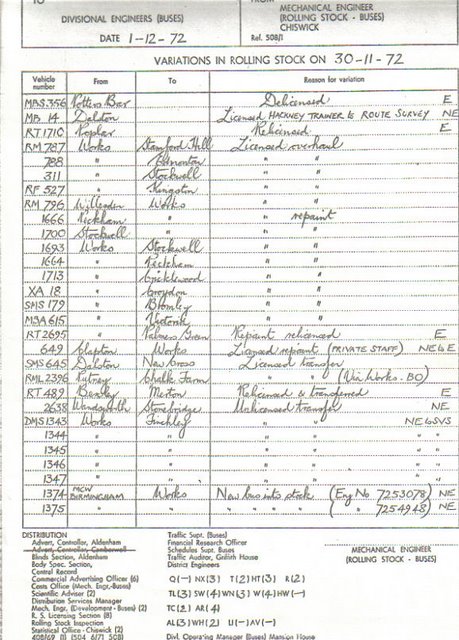 TO
FROM
DIVISIONAL ENGINEERS (BUSES)
MECHANICAL ENGINEER
(ROLLING STOCK - BUSES)
CHISWICK
DATE 1-12-72
Ref. 508/1
VARIATIONS IN ROLLING STOCK ON 30-11-72
Vehicle number From To Reason for variation
MBS 356 Potters Bar Delicensed E
MB 14 Dalston Licensed HACKNEY TRAINER to ROUTE SURVEY NE
RT 1710 Poplar Relicensed E
RM 787 Works Stamford Hill Licensed overhaul
788 " Edmonton " "
311 " Stockwell " "
RF 527 " Kingston " "
RM 796 Willesden Works " "
1666 Peckham " " repaint
1700 Stockwell " " "
1693 Works Stockwell " "
1664 " Peckham " "
1713 " Cricklewood " "
XA 18 " Croydon " "
SMS 179 " Bromley " "
MBA 615 " Victoria " "
RT 2695 " Palmers Green Repaint relicensed E
649 Clapton Works Licensed repaint (PRIVATE STAFF) NE to E
SMS 645 Dalston New Cross Licensed transfer
RML 2396 Putney Chalk Farm " " (Via Works. BO)
RT 489 Bexley Merton Relicensed & transferred E
2638 Wandsworth Stonebridge Unlicensed transfer NE
DMS 1343 Works Finchley " " NE to SVS
1344 " " " " " "
1345 " " " " " "
1346 " " " " " "
1347 " " " " " "
1374 MCW BIRMINGHAM Works New bus into stock (Eng No 7253078) NE
1375 " " " " " " ( " " 7254948) NE
DISTRIBUTION
Advert, Controller, Aldenham
Advert, Controller, Camberwell
Blinds Section, Aldenham
Body Spec, Section,
Central Record
Commercial Advertising Officer (6)
Costs Office (Mech. Engr.-Buses)
Scientific Adviser (2)
Distribution Services Manager
Mech. Engr. (Development - Buses) (2)
R. S. Licensing Section (8)
Rolling Stock Inspection
Statistical Office - Chiswick (2)
408/69 (1) 504 6/71 508)
Traffic Supt. (Buses)
Financial Research Officer
Schedules Supt. Buses
Traffic Auditor, Griffith House
District Engineers
Q(-) NX(3) T(2) HT(3) R(2)
TL(3) SW(4) WN(3) W(4) HW(-)
TC(2) AR(4)
AL(3) WH(2) U(-) AV(-)
Divl. Operating Manager (Buses) Mansion House
MECHANICAL ENGINEER
(ROLLING STOCK - BUSES)